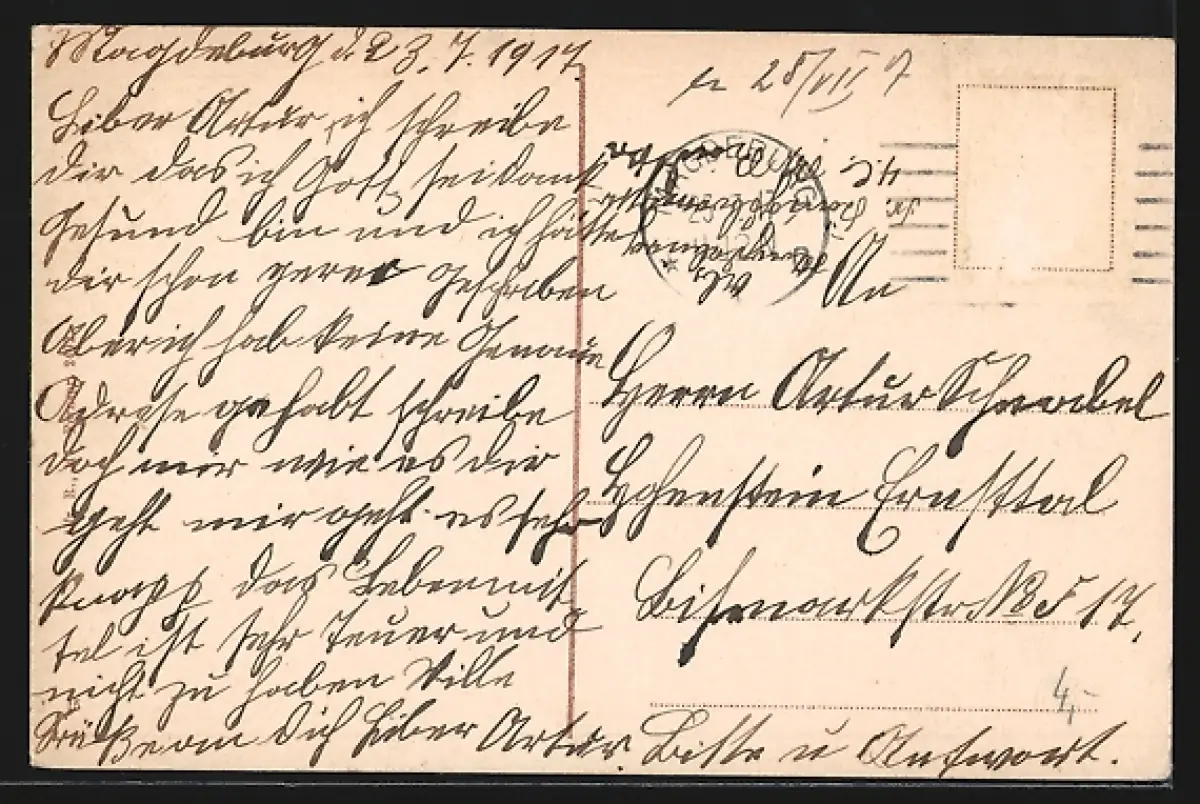 Magdeburg d. 23. 7. 1917.
Liber Artur ich schreibe
dir das ich Gott sei dank
Gesund bin und ich hätte
dir schon gerne geschrben
Aber ich hab keine Genaue
Adrese gehabt schreibe
doch mir wie es dir
geht mir geht es sehr
knapp das Lebenmit
tel ist sehr Teuer und
nicht zu haben Ville
Grüße an Dich Liber Artur. Bitte u Antwort.
28/VII 7
An
Herrn Artur Schnabel
Hohenstein Ernsttal
Bismarkstr No 17.
4,-